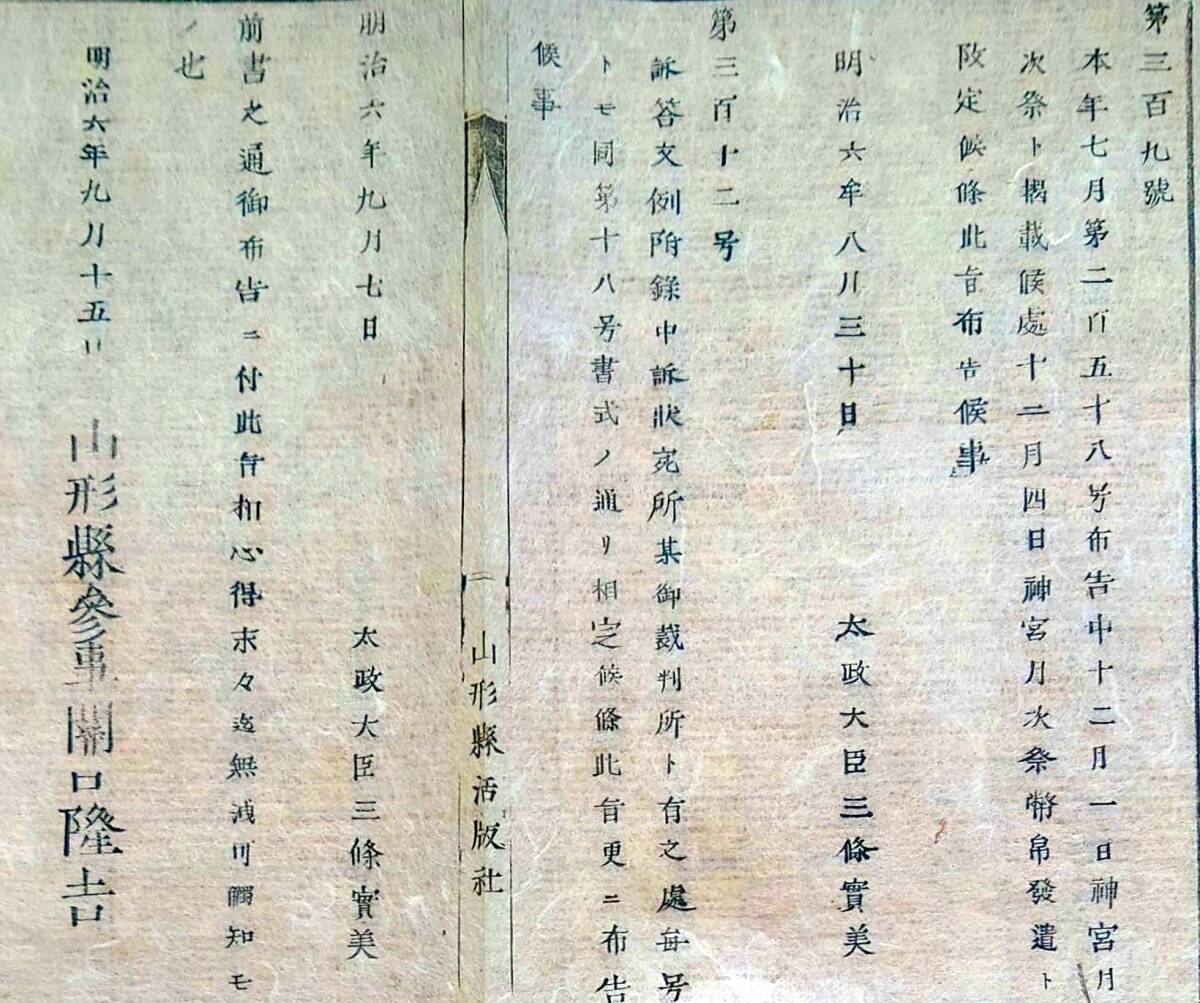 第三百九號
本年七月第二百五十八号布告中十二月一日神宮月
次祭ト揭載候處十二月四日神宮月次祭幣帛發遣ト
改定候條此旨布告候事
明治六年八月三十日
太政大臣三條實美
第三百十二号
訴答文例附錄中訴狀宛所某御裁判所ト有之處每号
トモ同第十八号書式ノ通リ相定候條此旨更ニ布告
候事
二
山形縣活版社
明治六年九月七日
太政大臣三條實美
前書之通御布告ニ付此旨相心得末々迄無洩可觸知モ
ノ也
明治六年九月十五日
山形縣參事關口隆吉